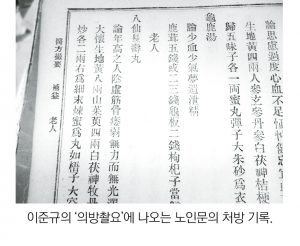 論思慮過度心血不足怔忡健
生地黃四兩人參玄參丹參白茯神桔梗
歸五味子各一兩蜜丸彈子大朱砂爲衣
龜鹿湯
論少血少氣夢遺泄精
鹿茸五錢或二三錢龜板二錢枸杞子當歸
老人
八仙長壽丸
論年高之人陰虛筋骨痿弱無力而無光澤
大懷生地黃八兩山茱萸四兩白茯神牧丹
炒各二兩右爲細末煉蜜爲丸如梧子大空
醫方撮要 補益 老人
이준규의 '의방촬요'에 나오는 노인문의 처방 기록.